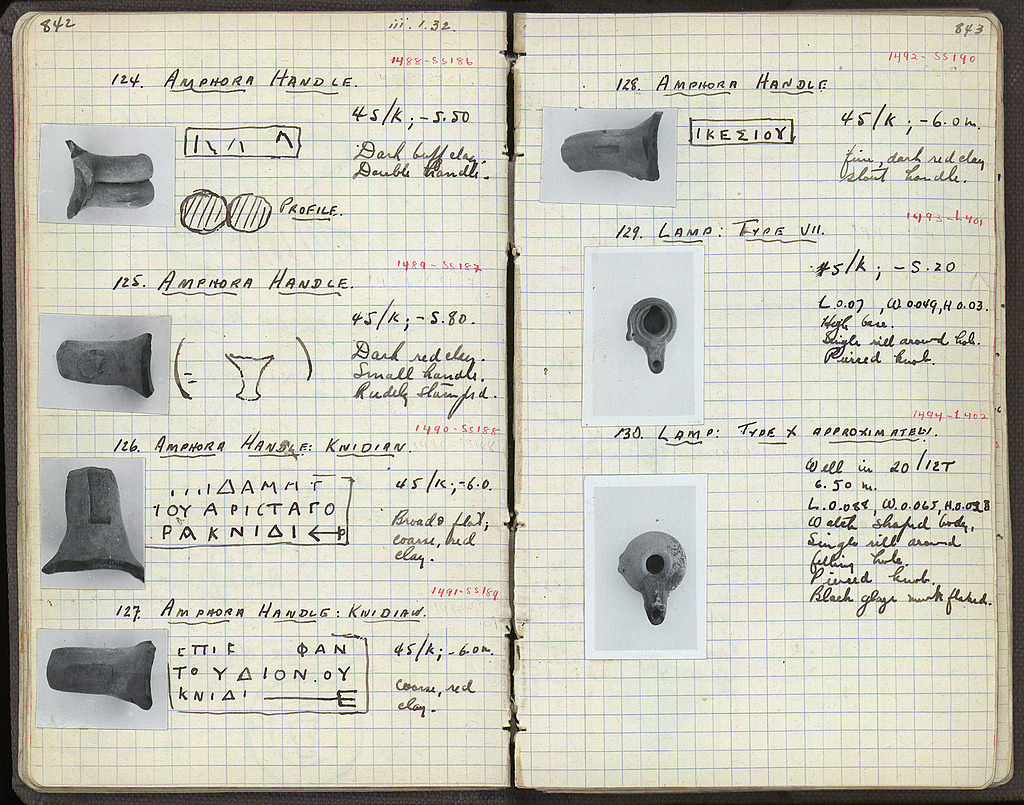 842
iii.1.32.
1488-SS186
124. AMPHORA HANDLE.
45/K; -5.50
Dark buff clay.
Double handle.
PROFILE.
1489-SS187
125. AMPHORA HANDLE.
45/K; -5.80.
Dark red clay.
Small handle.
Rudely stamped.
1490-SS188
126. AMPHORA HANDLE: KNIDIAN.
ΔΑΜΗΤ
ΙΟΥ ΑΡΙΣΤΑΓΟ
ΡΑ ΚΝΙΔΙ
45/K; -6.0.
Broad & flat;
coarse, red
clay.
1491-SS189
127. AMPHORA HANDLE: KNIDIAN.
ΕΠΙΕ ΦΑΝ
ΤΟΥ ΔΙΟΝ.ΟΥ
ΚΝΙΔΙ
45/K; -6.0m.
coarse, red
clay.
843
1492-SS190
128. AMPHORA HANDLE
ΙΚΕΣΙΟΥ
45/K; -6.0m.
fine, dark red clay
stout handle.
1493-L401
129. LAMP: TYPE VII.
45/K; -5.20
L 0.07, W 0.049, H 0.03.
High base.
Single rill around hole.
Pierced knob.
1494-L402
130. LAMP: TYPE X APPROXIMATELY.
Well in 20/ΙΣΤ
6.50 m.
L. 0.088, W. 0.065, H. 0.038
Watch shaped body,
Single rill around
filling hole.
Pierced knob.
Black glaze much flaked.